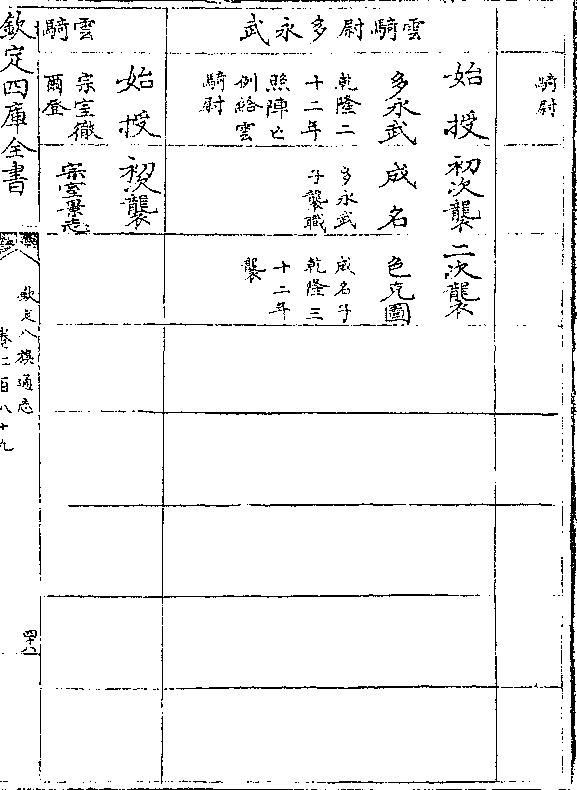 騎尉
雲騎尉多永武
始授
初次襲
二次襲
多永武
成名
色克圖
乾隆二
十二年
照陣亡
例給雲
騎尉
多永武
子襲職
成名子
乾隆三
十二年
襲
雲騎
始授
初次襲
宗室徹
爾登
宗室景志
欽定四庫全書
欽定八旗通志
卷二百八十九